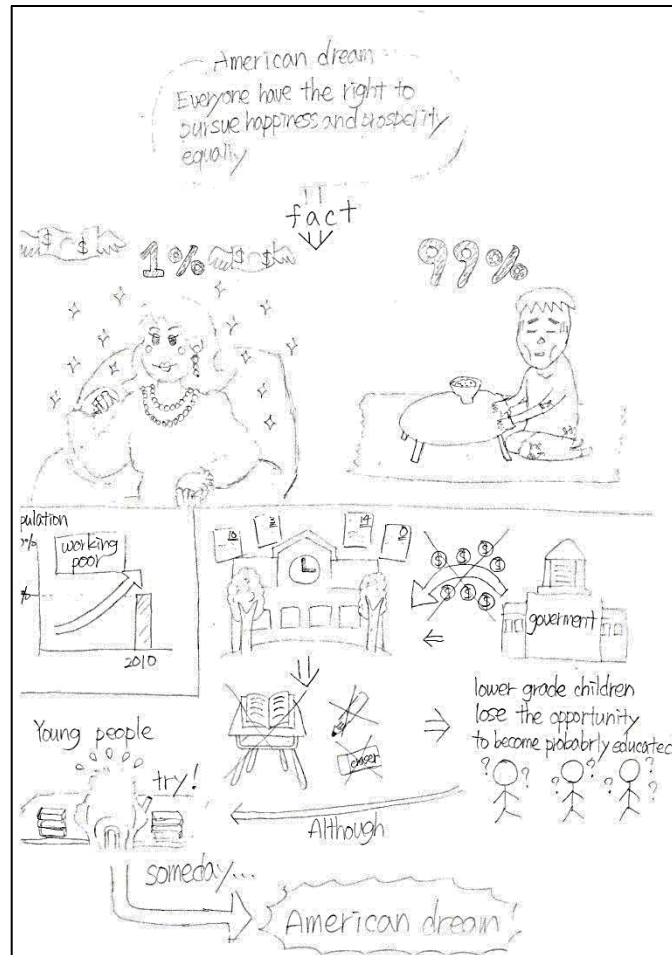 American dream
Everyone have the right to
pursue happiness and prosperity
equally
fact
1%
99%
pulation
%
working
poor
%
2010
10
14
0
$ $ $ $ $ $ $
goverment
Young people
try!
eraser
lower grade children
lose the opportunity
to become probabrly educated
? ? ? ? ? ?
Although
someday...
American dream